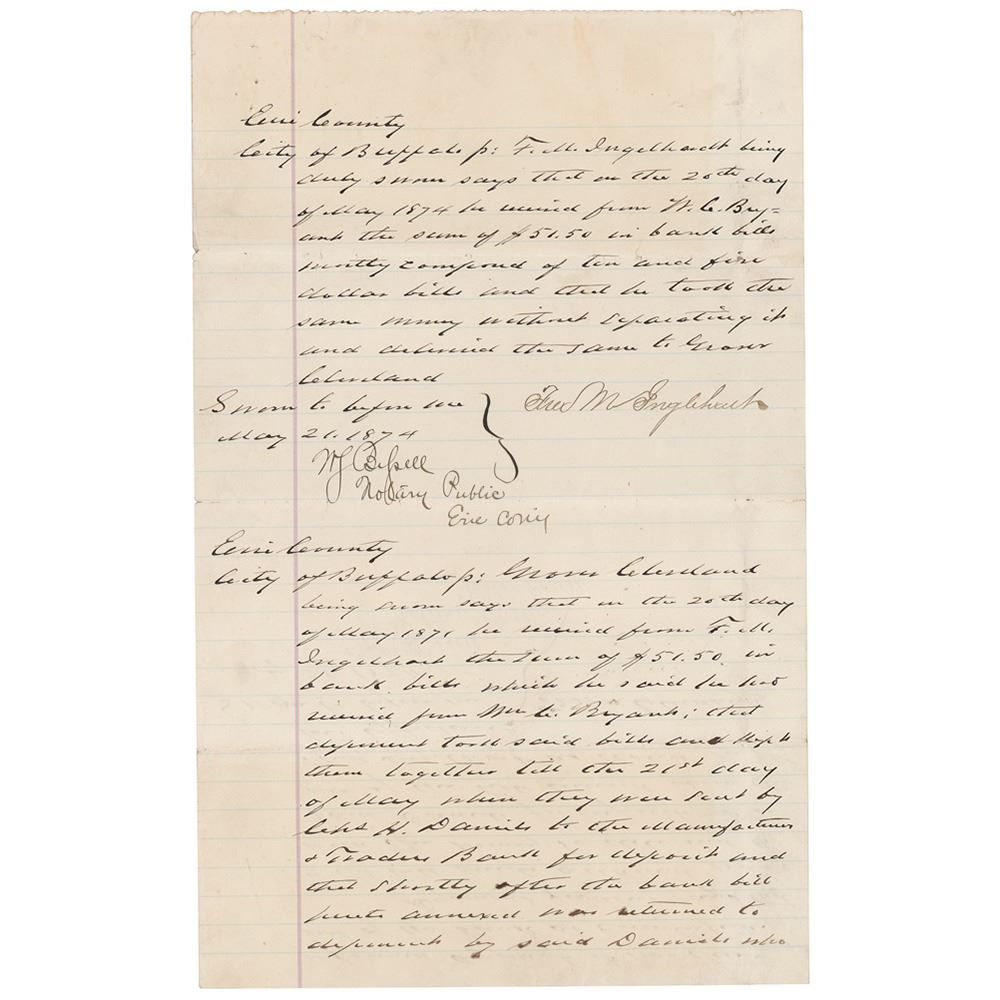 Erie County
City of Buffalo ss: F. M. Inglehardt being
duly sworn says that on the 20th day
of May 1874 he received from W. C. Bry=
ant the sum of $51.50 in bank bills
mostly composed of ten and five
dollar bills and that he took the
same money without separating it
and delivered the same to Grover
Cleveland
Sworn to before me
May 21. 1874
Fred M Inglehart
W J Bissell
Notary Public
Erie Coniy
Erie County
City of Buffalo ss: Grover Cleveland
being sworn says that on the 20th day
of May 187, he received from F. M.
Ingelhart the sum of $51.50. in
bank bills which he said he had
received from Wm C. Bryant; that
deponent took said bills and kept
them together till the 21st day
of May when they were sent by
H. Daniels to the Manufacturers
& Traders Bank for deposit and
that shortly after the bank bill
hereto annexed was returned to
deponent by said Daniels who